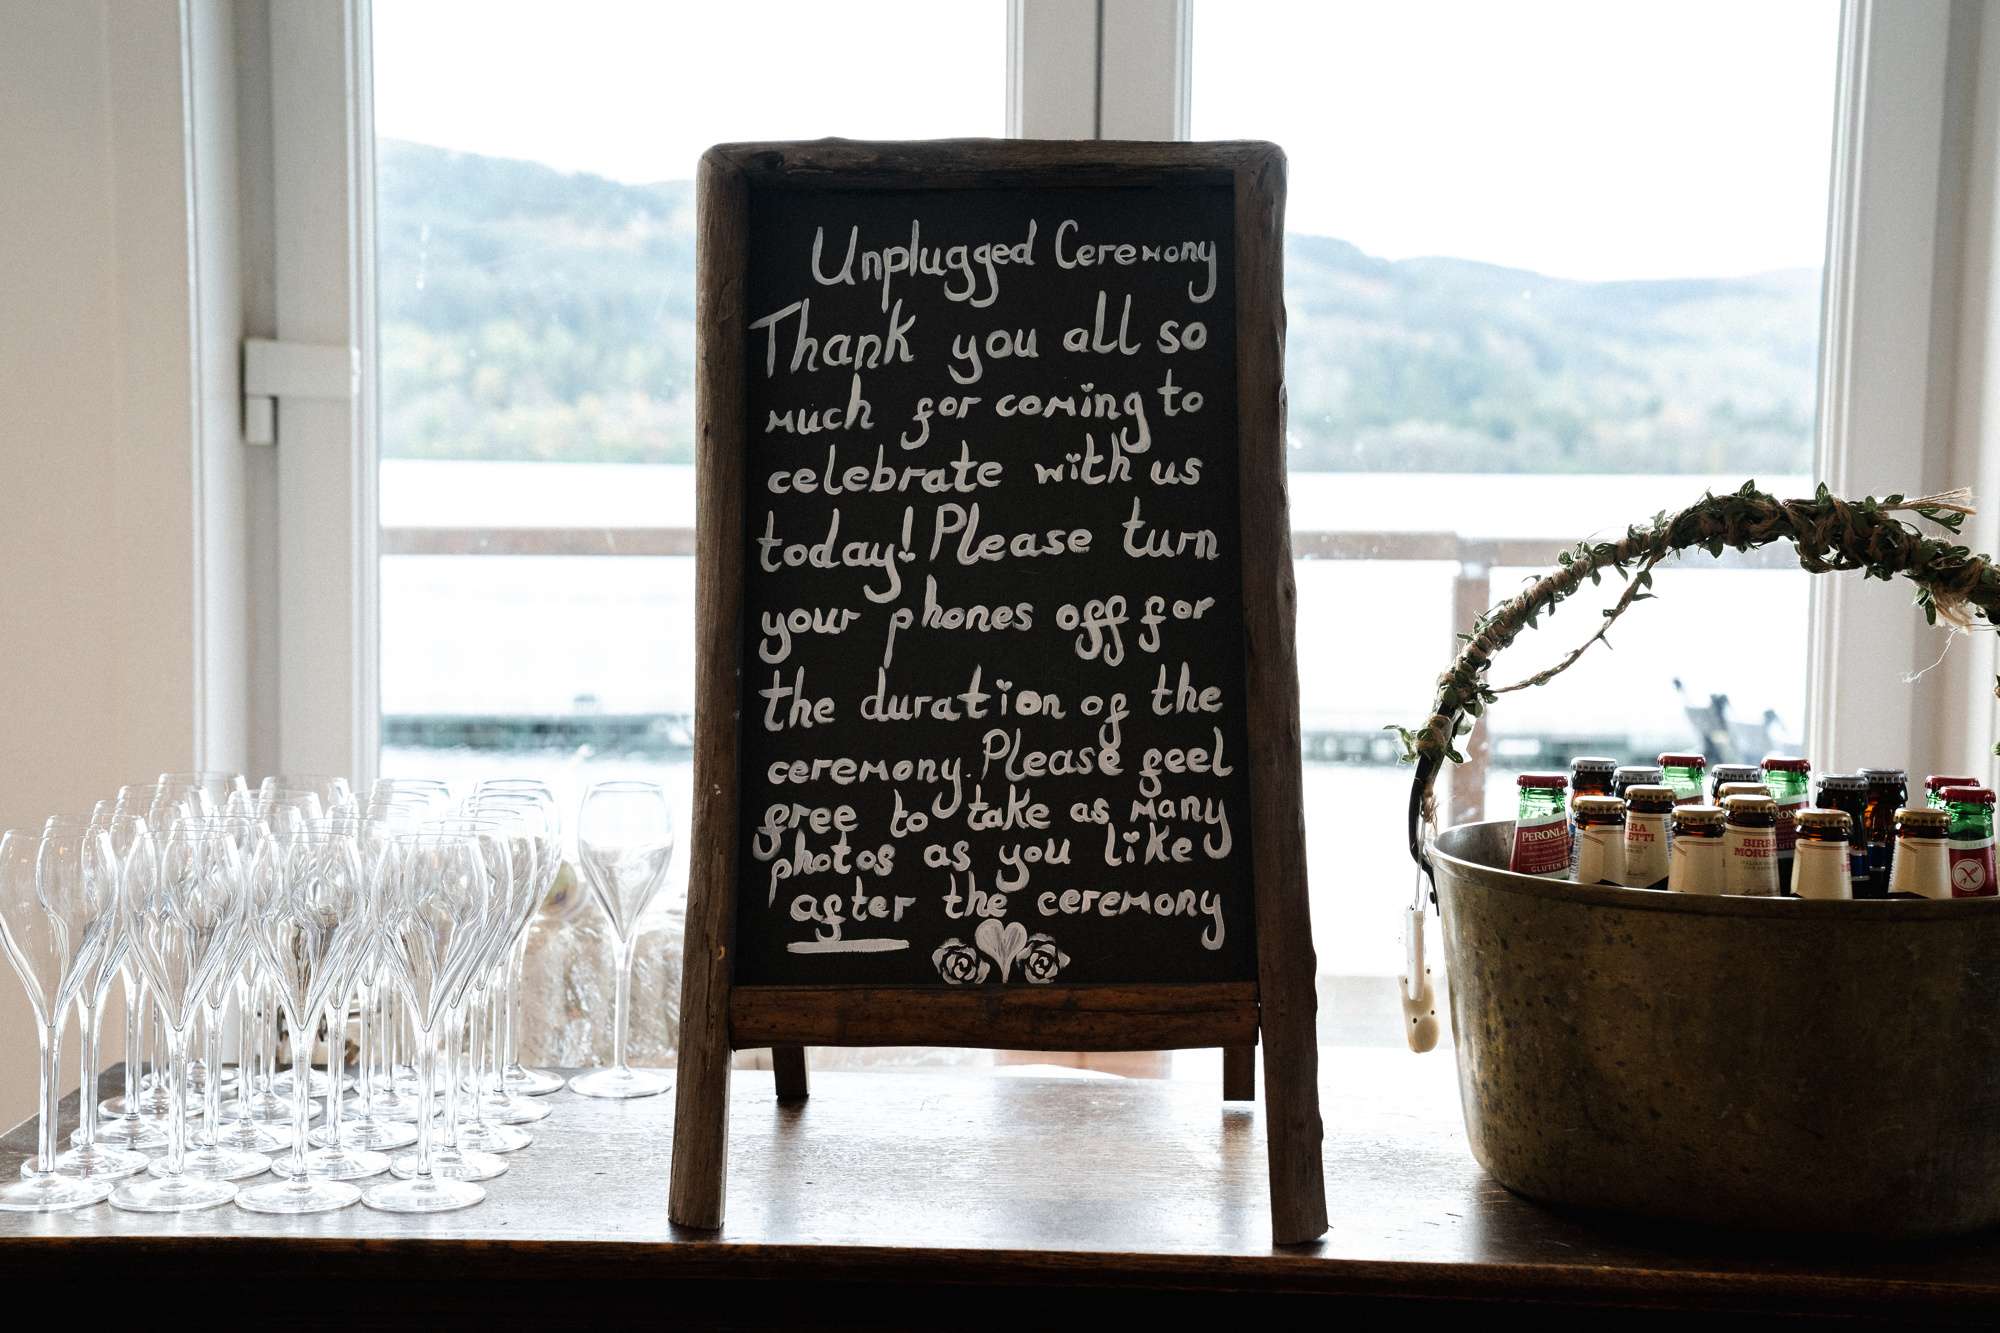 Unplugged Ceremony
Thank you all so
much for coming to
celebrate with us
today! Please turn
your phones off for
the duration of the
ceremony. Please feel
free to take as many
photos as you like
after the ceremony
PERONI
GLUTEN
BIRRA
MORETTI